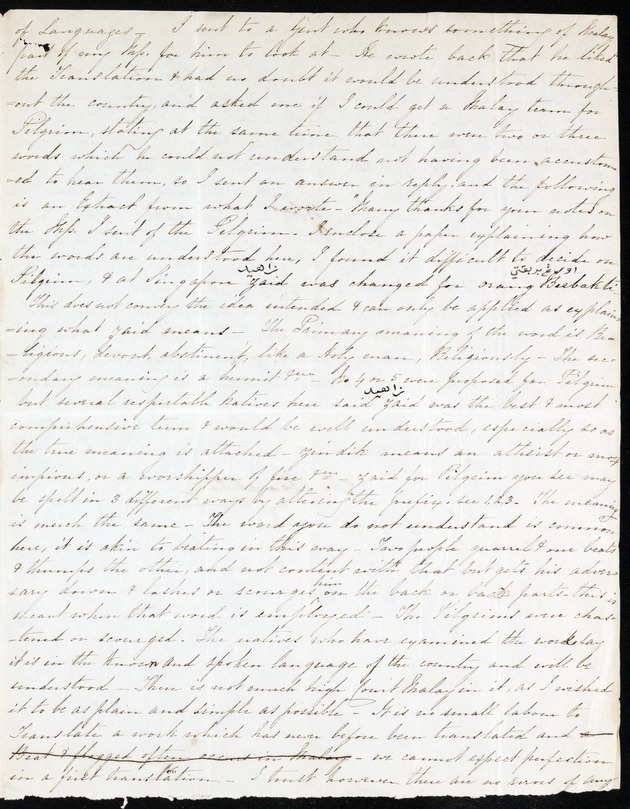 of Languages - I sent to a Gent who knows something of Malay
part of my Mss. for him to look at - He wrote back that he liked
the Translation & had no doubt it would be understood through-
-out the country, and asked me if I could get a Malay team for
Pilgrim, stating at the same time that there were two or three
words which he could not understand not having been accustom-
-ed to hear them, so I sent an answer in reply, and the following
is an Extract from what I wrote - "Many thanks for your notes on
the Mss. I sent of the Pilgrim. I enclose a paper explaining how
the words are understood here, I found it difficult to decide on
زاهيد
Pilgrim, & at Singapore Zaid was changed for orang Berbakti
This does not convey the idea intended & can only be applied as explain-
-ing what zaid means - The Primary meaning of the word is Re-
-ligious, devout, abstinent, like a Holy man, Religiously - The sec-
-ondary meaning is a hermit &c - No 4 were proposed for Pilgrim
زاهيد
but several respectable Natives here said zaid was the best & most
comprehensive term & would be well understood, especially so as
the true meaning is attached - Zindik means an atheist or most
impious, or a worshipper of fire &c - Zaid for Pilgrim you see may
be spelt in 3 different ways by altering the prefix. see 1,2,3 - The meaning
is much the same - The word you do not understand is common
here, it is akin to beating in this way - Two people quarrel & one beats
& thumps the other, and not content with that but gets his adver-
sary down & lashes or scourges him on the back or back parts - this is
meant when that word is employed - The Pilgrims were chas-
-tened or scourged. The natives who have examined the work say
it is in the known and spoken language of the country and will be
understood - There is not much high Court Malay in it, as I wished
it to be as plain and simple as possible - It is no small labour to
Translate a work which has never before been translated and
Beat & flogged often occurs in Malay - we cannot expect perfection
in a first translation - I trust however there are no errors of any